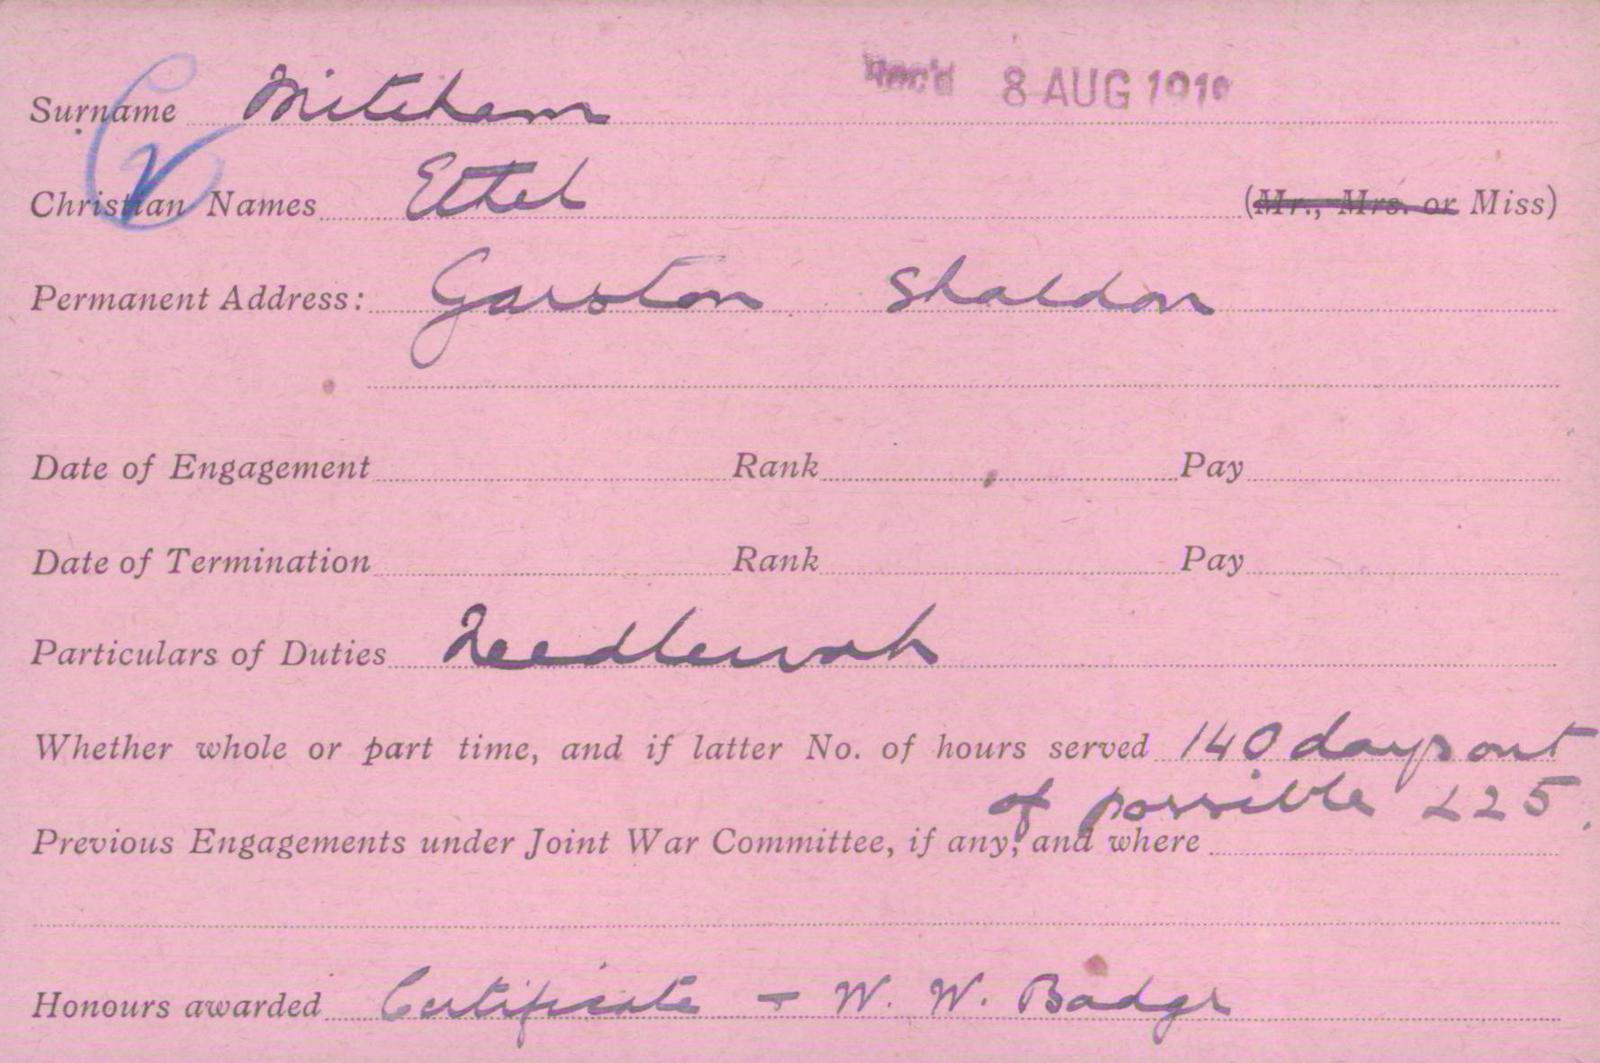 Rec'd 8 AUG 1919
Surname Mitcham
Christian Names Ethel (Mr., Mrs. or Miss)
Permanent Address: Garston Shaldon
Date of Engagement Rank Pay
Date of Termination Rank Pay
Particulars of Duties Needlework
Whether whole or part time, and if latter No. of hours served 140 days out
of possible 225.
Previous Engagements under Joint War Committee, if any, and where
Honours awarded Certificate - W. W. Badge